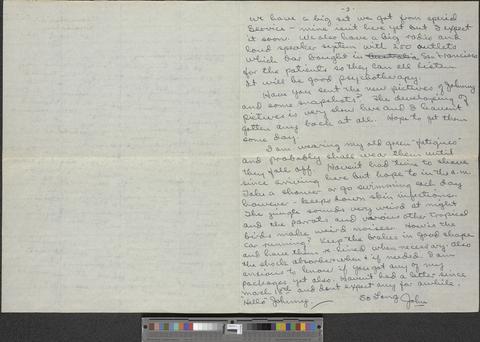 -2-
We have a big set we got from special
Service - mine isn't here yet but I expect
it soon. We also have a big radio and
loud speaker system with 200 outlets
which Bar bought in Australia San Francisco
for the patients so they can all listen
It will be good psychotherapy.
Have you sent the new pictures of Johnny
and some snapshots? The developing of
pictures is very slow here and I haven't
gotten any back at all. Hope to get them
some day.
I am wearing my old green "fatigues"
and probably shall wear them until
they fall off. Haven't had time to shave
since arriving here but hope to in the a.m.
Take a shower or go swimming each day
however - keeps down skin infections.
The jungle sounds very weird at night
and the parrots and various other tropical
birds make weird noises. How's the
car running? Keep the brakes in good shape
and have them re-lined when necessary; also
the shock absorbers when & if needed. I am
anxious to know if you got any of my
packages yet also. Haven't had a letter since
March 18th and don't expect any for awhile.
Hello Johnny. So Long John